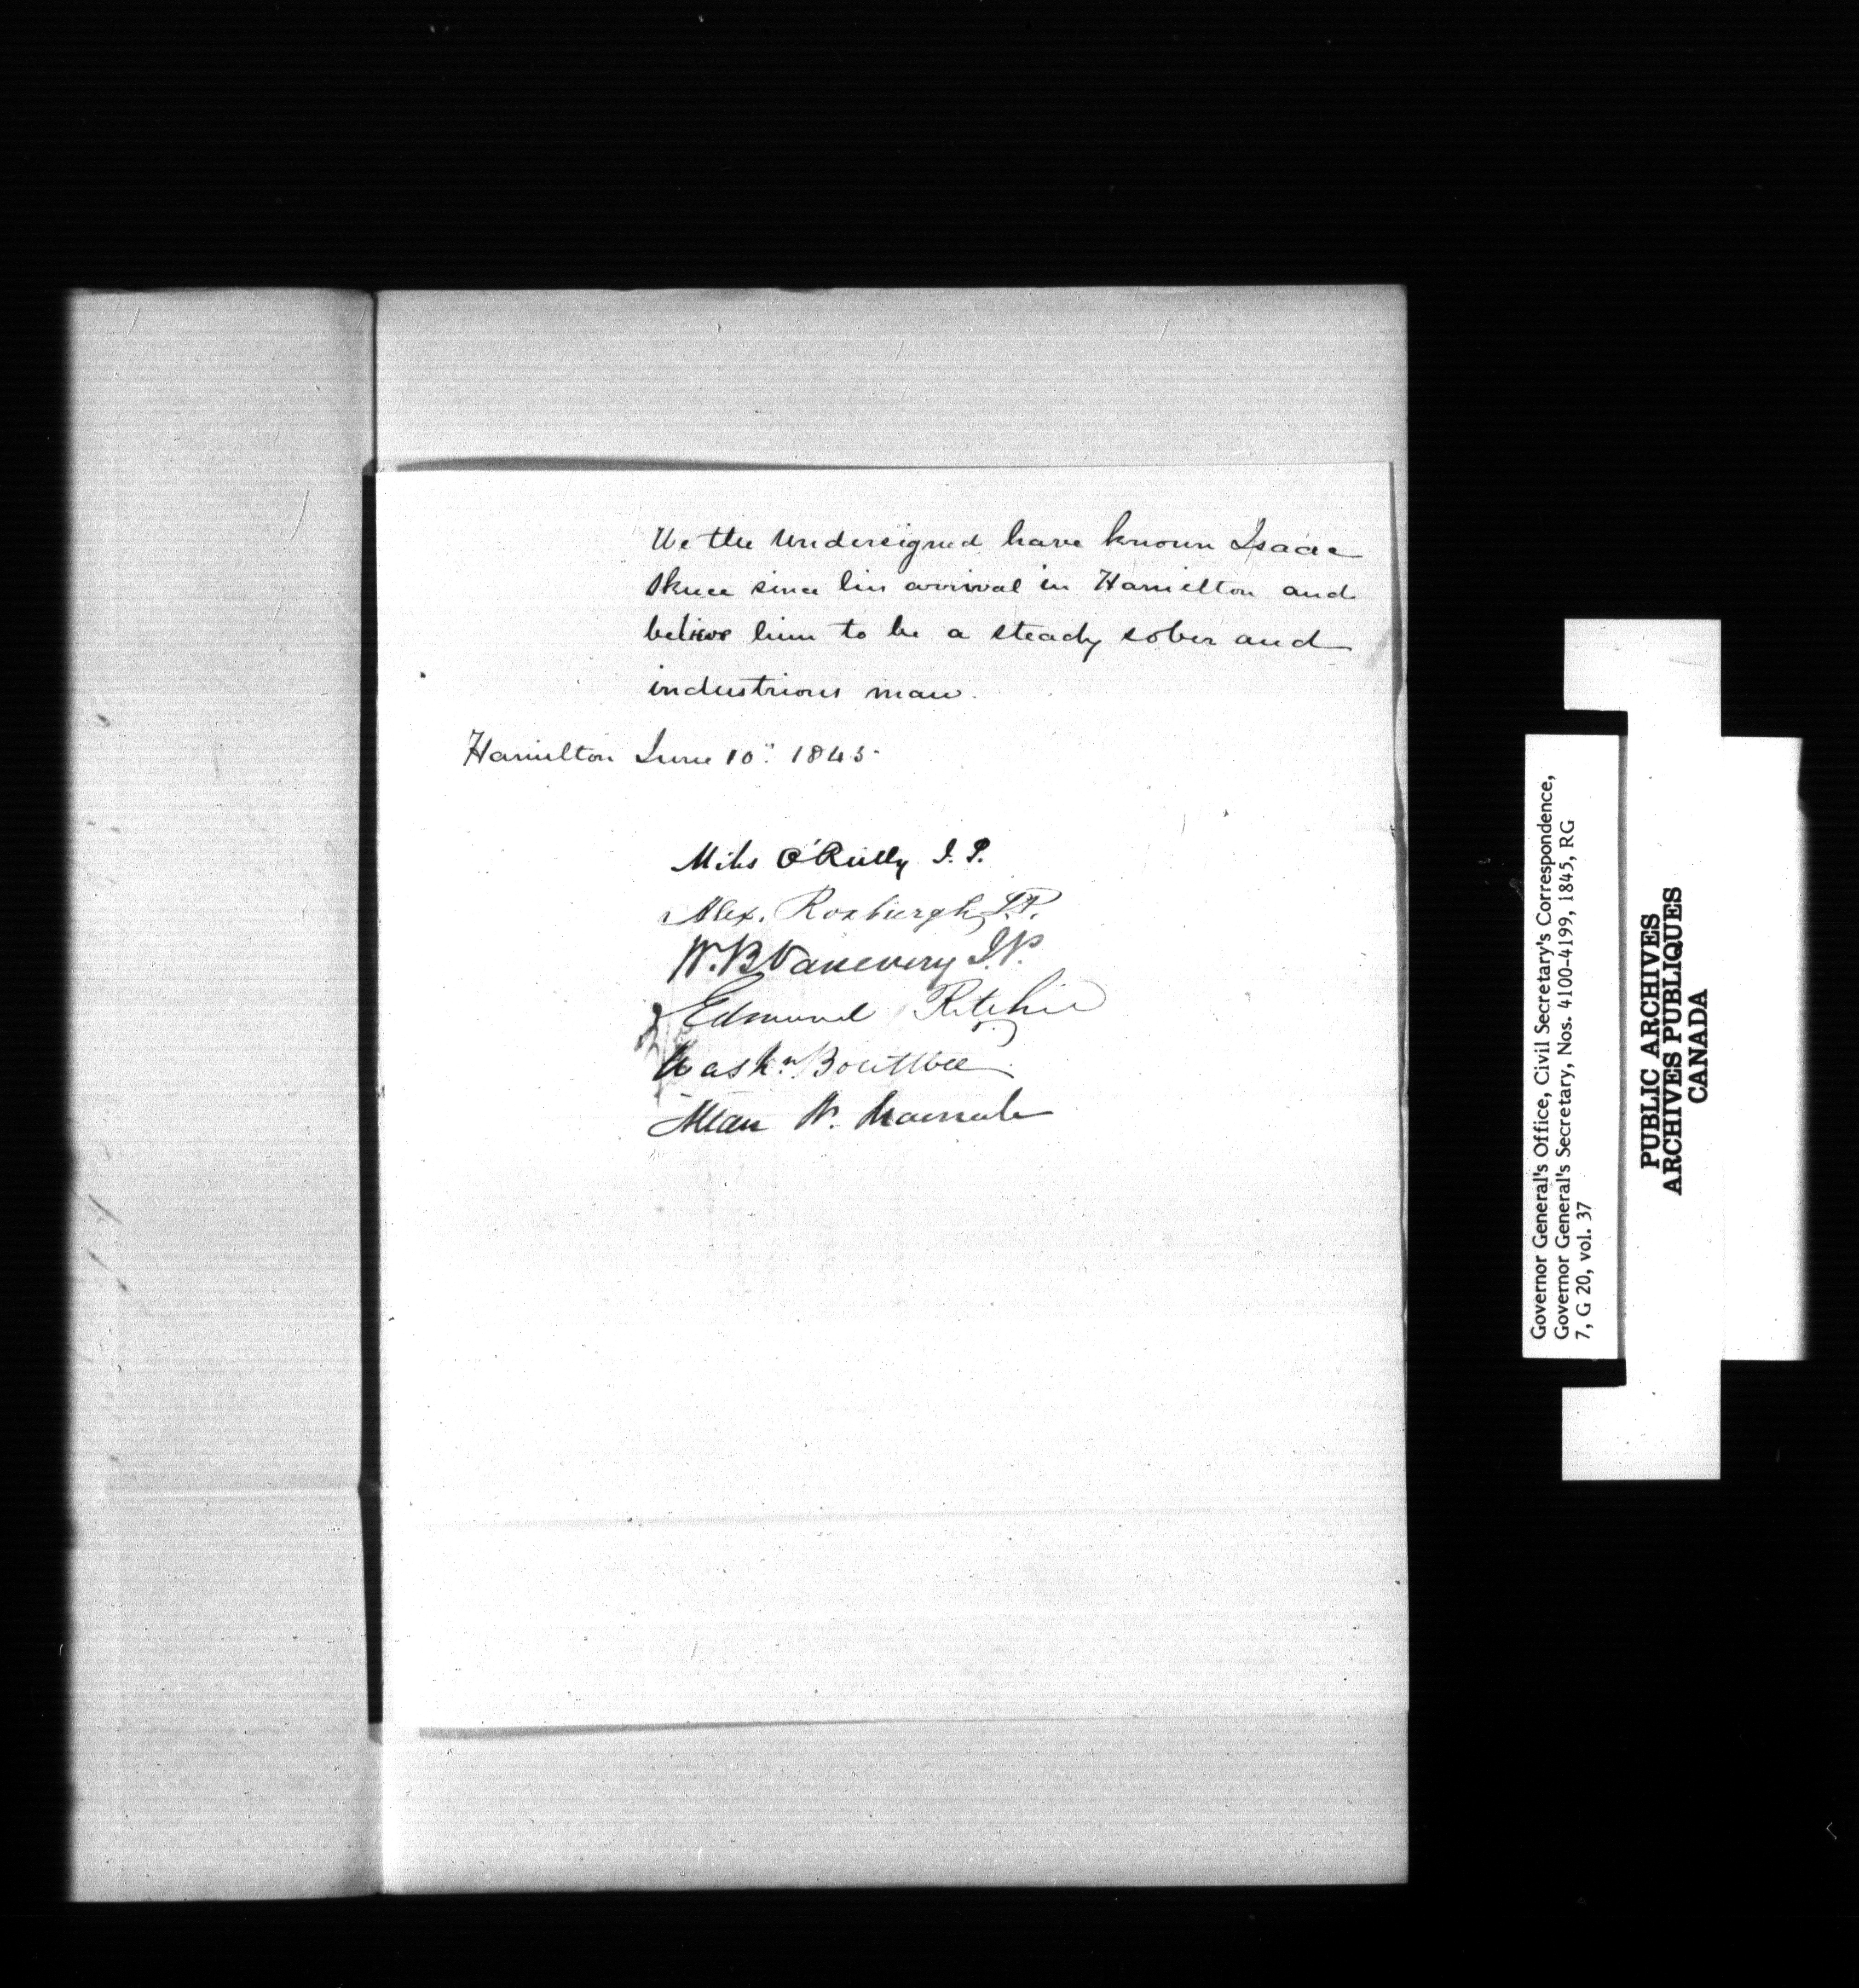 We the Undersigned have known Isaac
Skuce since his arrival in Hamilton and
believe him to be a steady sober and
industrious man.
Hamilton June 10" 1845
Miles O'Reilly J. P.
Alex. Roxburgh J.P.
W. B Vanevery J.P.
Edmund Ritchie
Wash:n
Allan N. Macnab
Governor General's Office, Civil Secretary's Correspondence,
Governor General's Secretary, Nos. 4100-4199, 1845, RG
7, G 20, vol. 37
PUBLIC ARCHIVES
ARCHIVES PUBLIQUES
CANADA